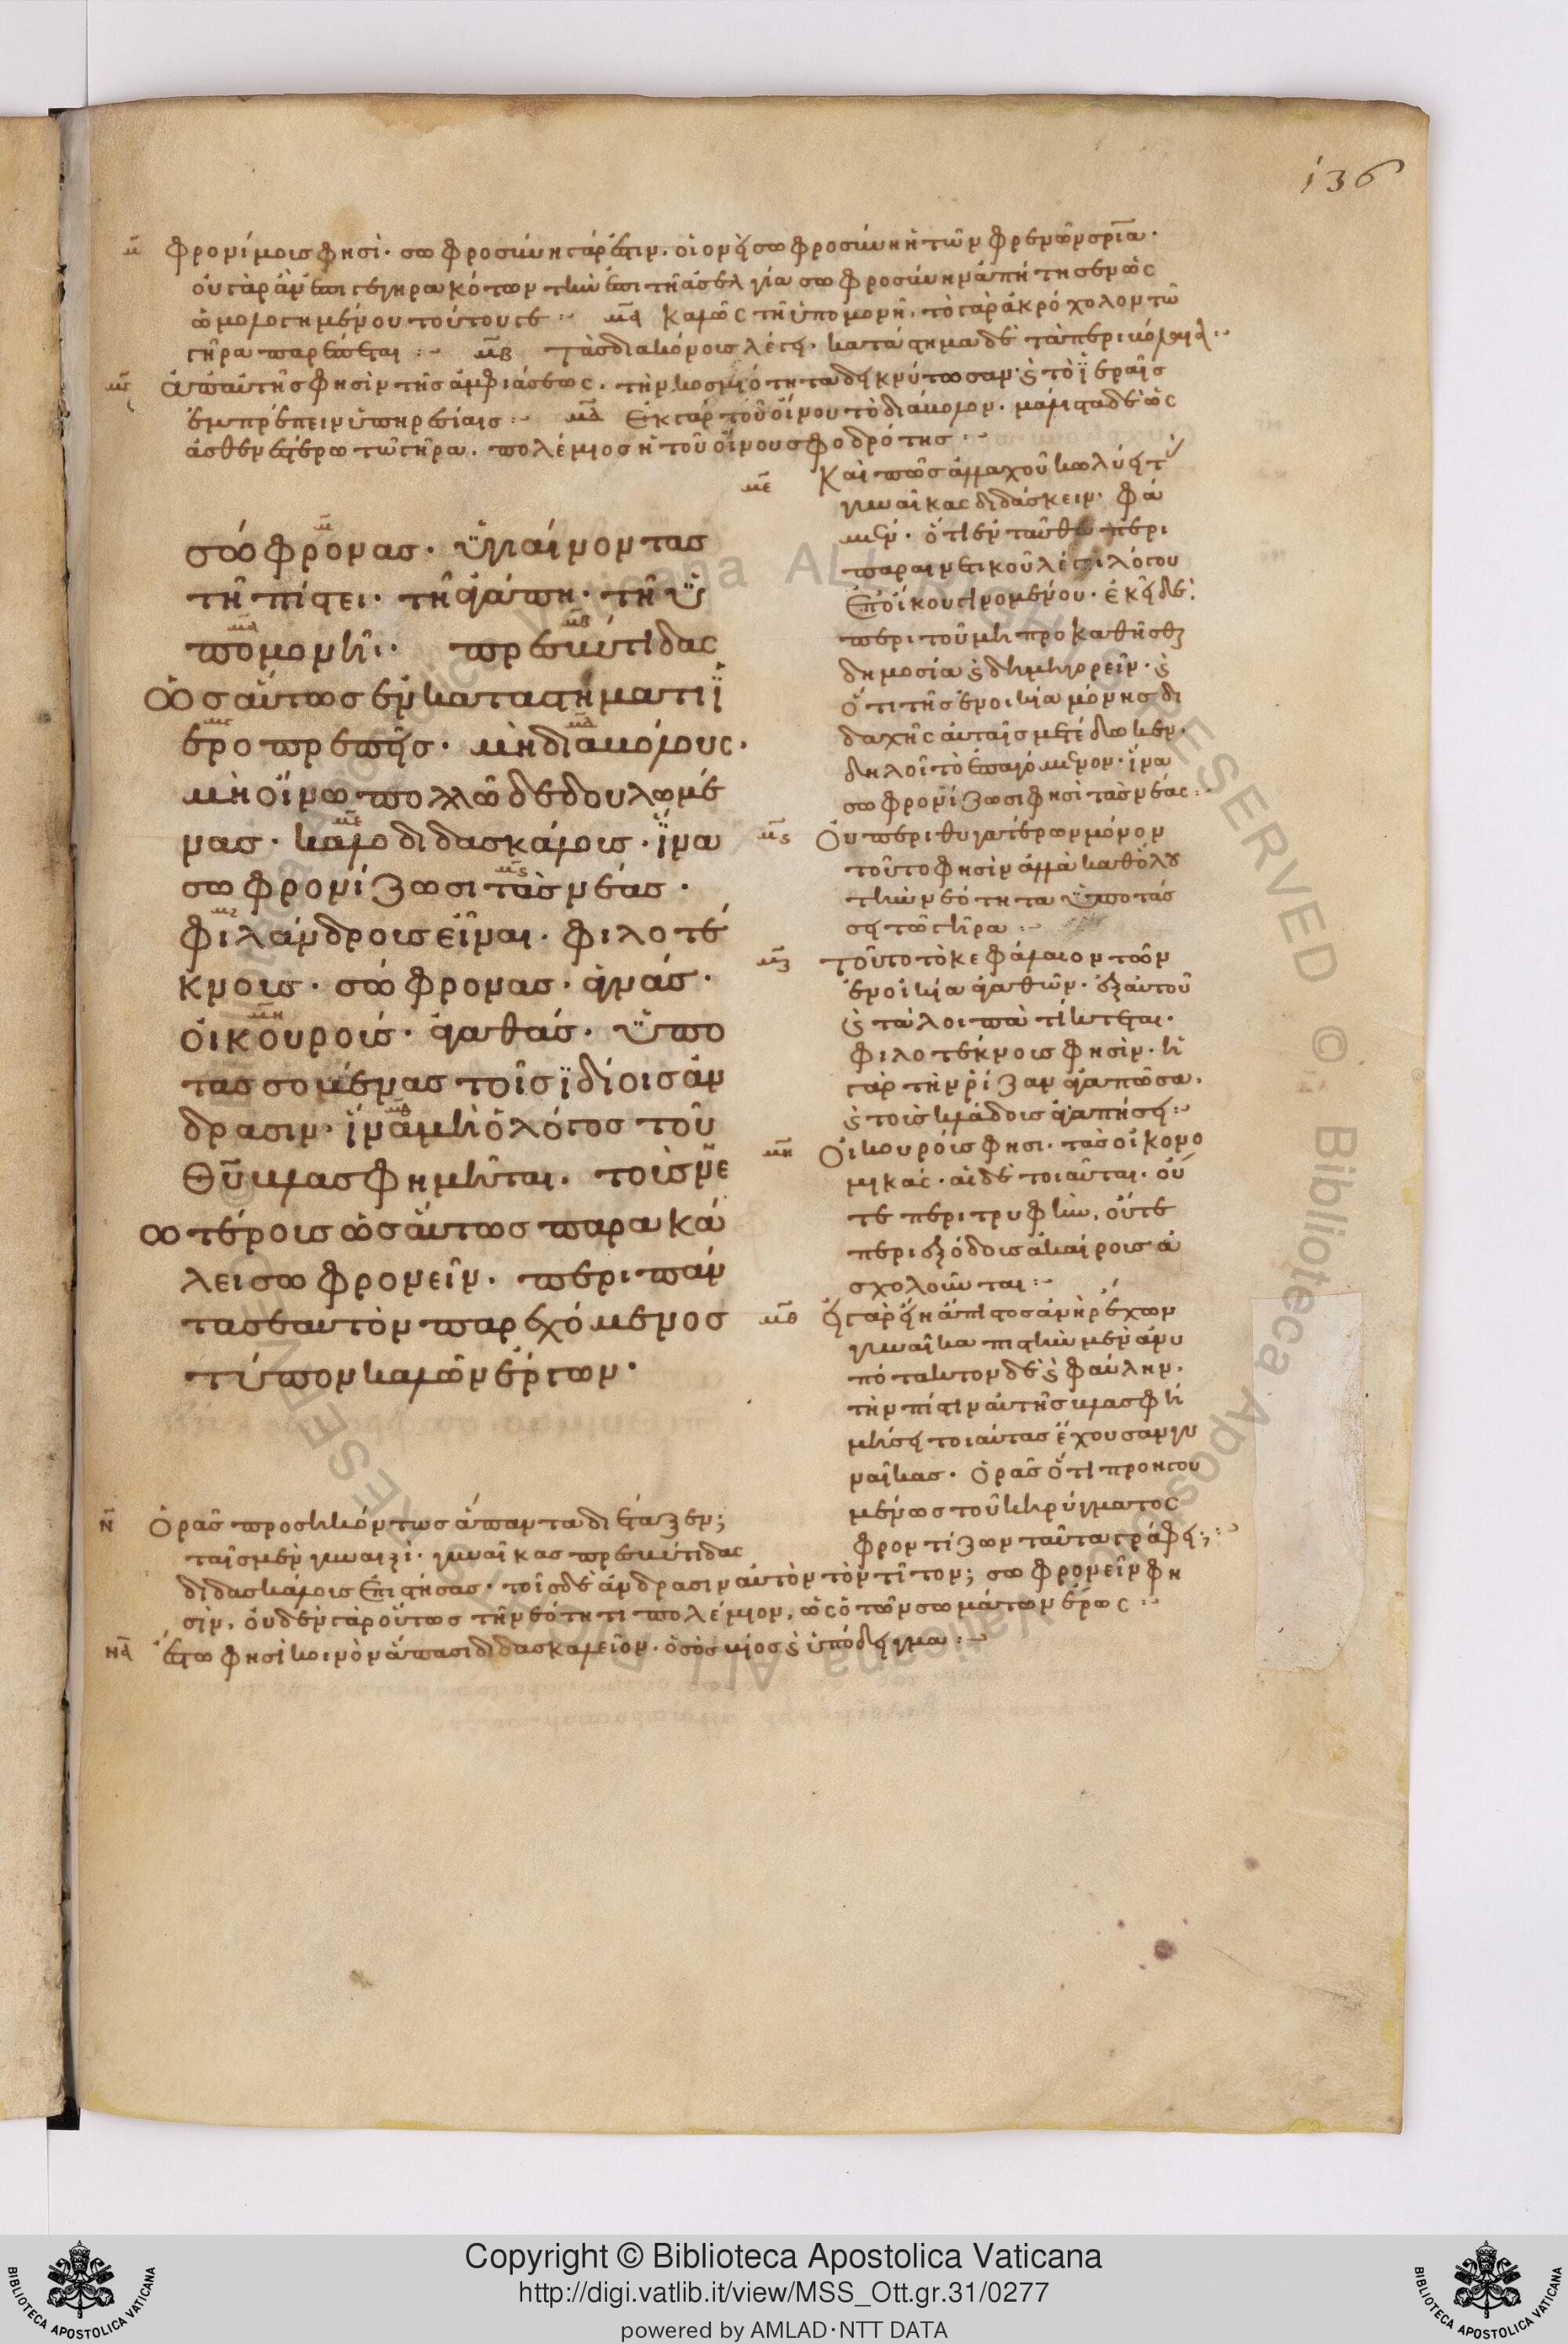 136
μ̅ φρονίμοις φησὶ· σωφροσύνη γάρ ἐστιν, οἱονεὶ σωφροσύνη ἡ τῶν φρενῶν σρι̅α·
οὐ γὰρ ἂν ἐπὶ γεγηρακότων τὴν ἐπὶ τῇ ἀσελγεία σωφροσύνην ἀπήτησεν ὡς
ὡμολογημένου τούτου γε :~ μ̅α̅ καλῶς τῇ ὑπομονῇ, τὸ γὰρ ἀκρόχολον τῶ
γήρα παρέπεται :~ μ̅β̅ τὰς διακόνοις λέγει· κατάστημα δὲ τὰ περιβόλαια :~
μ̅γ̅ ἀπ' αὐτῆς φησὶν τῆς ἀμφιάσεως, τὴν κοσμιότητα δεικνύτωσαν· ϗ τὸ ϊεραῖς
ἐμπρέπειν ὑπηρεσίαις :~ μ̅δ̅ ἐκ γὰρ τοῦ οἴνου τὸ διάβολον, μάλιστα δὲ ὡς
ἀσθενεστέρω τῶ γήρα, πολέμιος ἡ τοῦ οἴνου σφοδρότης :~
σώφρονας· ϋγιαίνοντας
τῆ πίστει· τῆ ἀγάπη· τῆ ϋ
πομονῆι· πρεσβύτιδας
ὡσαύτως ἐν καταστήματι ϊ
εροπρεπεῖς· μὴ διαβόλους·
μὴ οἴνω πολλῶ δεδουλωμέ
νας· καλοδιδασκάλοις· ἵνα
σωφρονίζωσι τὰς νέας·
φιλάνδροις εἶναι· φιλοτέ
κνοις· σώφρονας· ἁγνάς·
οἰκουροὺς· ἀγαθάς· ϋπο
τασσομένας τοῖς ϊδίοις ἀν
δράσιν· ἵνα μὴ ὁ λόγος τοῦ
θ̅υ̅ βλασφημῆται· τοὺς νε
ωτέρους ὡσαύτως παρακά
λει σωφρονεῖν· περὶ πάν
τας ἑαυτὸν παρεχόμενος
τύπον καλῶν ἔργων·
μ̅ε̅ καὶ πῶς ἀλλαχοῦ κωλύει τ
γυναῖκας διδάσκειν· φα
μέν· ὅτι ἐνταῦθα περὶ
παραινετικοῦ λέγει λόγου
ἐπ' οἴκου γινομένου· ἐκεῖ δὲ,
περὶ τοῦ μὴ προκαθῆσθαι
δημοσία ϗ δημηγορεῖν· ϗ
ὅτι τῆς ἐν οἰκία μόνης δι
δαχῆς αὐταῖς μετέδωκεν·
δηλοῖ τὸ ἐπαγόμενον· ἵνα
σωφρονίζωσι φησὶ τὰς νέας :~
μ̅ϛ̅ οὐ περὶ θυγατέρων μόνον
τοῦτο φησὶν ἀλλὰ καθόλου
τὴν νεότητα ϋποτάσ
σει τῶ γήρα :~
μ̅ζ̅ τοῦτο τὸ κεφάλαιον τῶν
ἐν οἰκία ἀγαθῶν· ἐξ αὐτοῦ
ϗ τὰ λοιπὰ τίκτεται·
φιλοτέκνοις φησὶν· ἡ
γὰρ τὴν ῥίζαν ἀγαπῶσα,
ϗ τοὺς κλάδους ἀγαπήσει :~
μ̅η̅ οἰκουροὺς φησι· τὰς οἰκονο
μικάς· αἱ δὲ τοιαῦται· οὔ
τε περὶ τρυφὴν, οὔτε
περὶ ἐξόδους ἀκαίρους ἀ
σχολοῦνται :~
μ̅θ̅ εἰ γὰρ εἴη ἄπιστος ἀνὴρ ἔχων
γυναῖκα πιστὴν μὲν ἀνυ
πότακτον δὲ ϗ φαύλην,
τὴν πίστιν αὐτῆς βλασφη
μήσει τοιαύτας ἔχουσαν γυ
ναῖκας· ὁρᾶς ὅτι προηγου
μένως τοῦ κηρύγματος
φροντίζων ταῦτα γράφει; :~
ν̅ ὁρᾶς προσηκόντως ἅπαντα διέταξεν;
ταῖς μὲν γυναιξὶ· γυναῖκας πρεσβύτιδας
διδασκάλους ἐπιστήσας· τοῖς δὲ ἀνδράσιν αὐτὸν τὸν τίτον; σωφρονεῖν φη
σιν, οὐδὲν γὰρ οὕτως τῆ νεότητι πολέμιον, ὡς ὁ τῶν σωμάτων ἔρως :~
ν̅α̅ ἔστω φησὶ κοινὸν ἅπασι διδασκαλεῖον· ὁ σὸς βίος ϗ ὑπόδειγμα :~
Copyright © Biblioteca Apostolica Vaticana
http://digi.vatlib.it/view/MSS_Ott.gr.31/0277
powered by AMLAD·NTT DATA